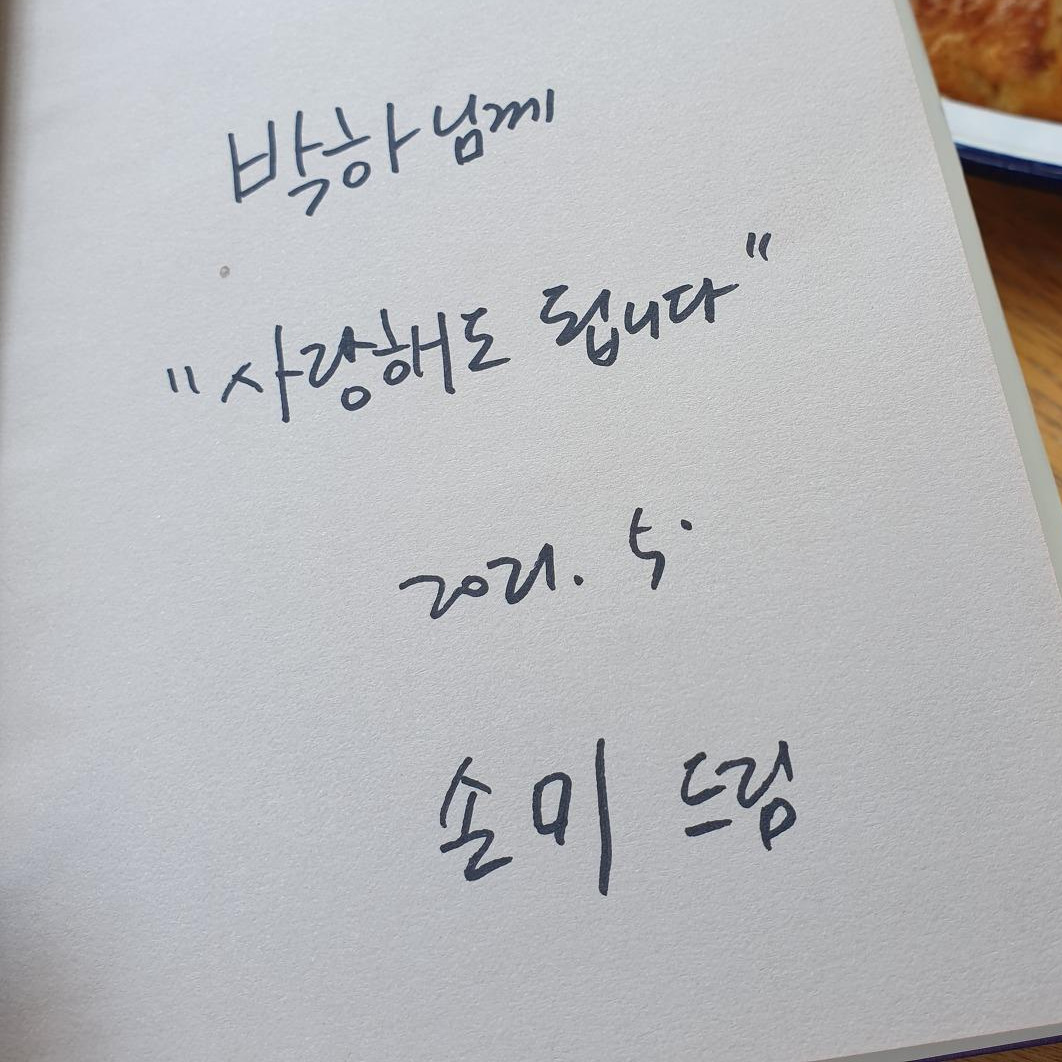 박하님께
"사랑해도 됩니다"
2021. 5.
손미 드림